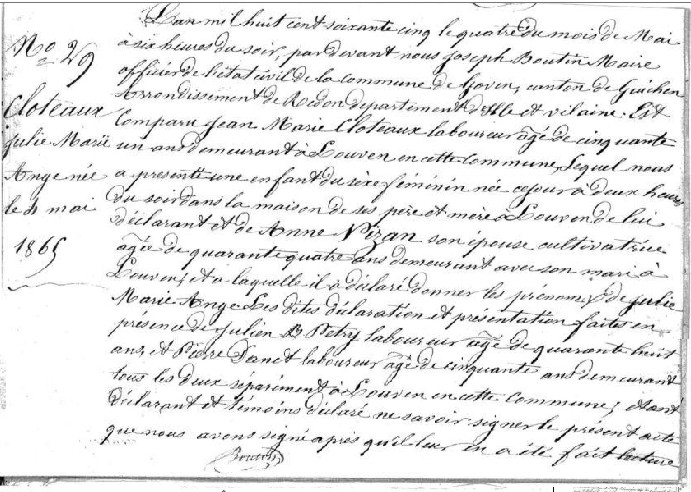 No 29
Cloteaux
Julie Marie
Ange née
le 4 mai
1865
L'an mil huit cent soixante cinq le quatre du mois de Mai
à six heures du soir, par devant nous Joseph Boutin Maire
officier de l'état civil de la commune de Goven, canton de Guichen
Arrondissement de Redon département d'Ille et vilaine. Est
Comparu Jean Marie Cloteaux laboureur âgé de cinquante
un ans demeurant à Louven en cette commune, Lequel nous
a présenté une enfant du sexe féminin née ce jour à deux heures
du soir dans la maison de ses père et mère à Louven de lui
déclarant et de Anne Nizan son épouse cultivatrice
âgée de quarante quatre ans demeurant avec son mari à
Louven, et à laquelle il a déclaré donner les prénoms de Julie
Marie Ange Les dites déclaration et présentation faites en
présence de Julien Petry laboureur âgé de quarante huit
ans, et Pierre Danet laboureur âgé de cinquante ans demeurant
tous les deux séparément à Louven en cette commune; et ont
déclarant et témoins déclaré ne savoir signer le présent acte
que nous avons signé après qu'il leur en a été fait lecture
Boutin